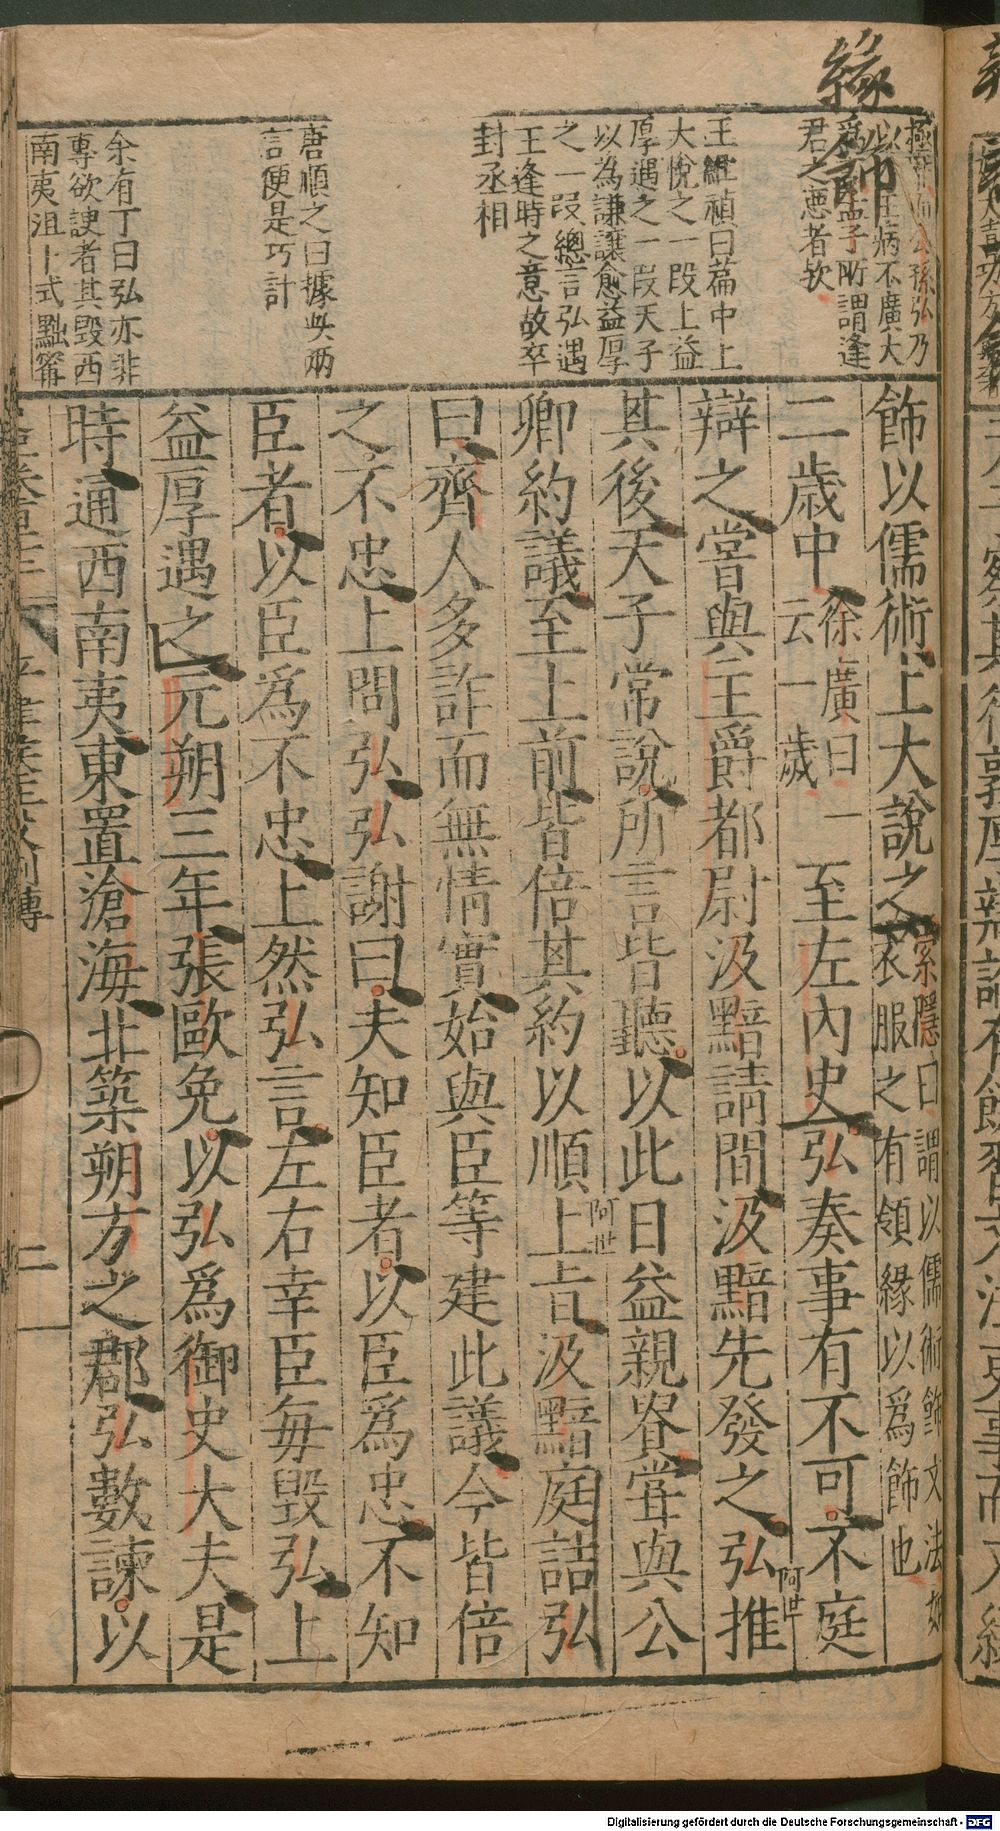 緣飾
以
王病不廣大
爲
孟子所謂逢
君之惡者欤
王維禎曰篇中上
大悅之一段上益
厚遇之一段天子
以為謙讓愈益厚
之一段總言弘遇
王逢時之意故卒
封丞相
唐順之曰據
言便是巧計
余有丁曰弘亦非
專欲諛者其毀西
南夷沮卜式黜甯
飾以儒術上大說之
索隱曰謂以儒術飾文法如
衣服之有領緣以爲飾也
二歲中
徐廣曰一
云一歲
至左內史弘奏事有不可不庭
辯之嘗與主爵都尉汲黯請間汲黯先發之弘推
其後天子常說所言皆聽以此日益親貴嘗與公
卿約議至上前皆倍其約以順上旨汲黯庭詰弘
曰齊人多詐而無情實始與臣等建此議今皆倍
之不忠上問弘弘謝曰夫知臣者以臣爲忠不知
臣者以臣爲不忠上然弘言左右幸臣每毀弘上
益厚遇之元朔三年張歐免以弘爲御史大夫是
時通西南夷東置滄海北築朔方之郡弘數諫以
二
阿世
阿世
Digitalisierung gefördert durch die Deutsche Forschungsgemeinschaft - DFG